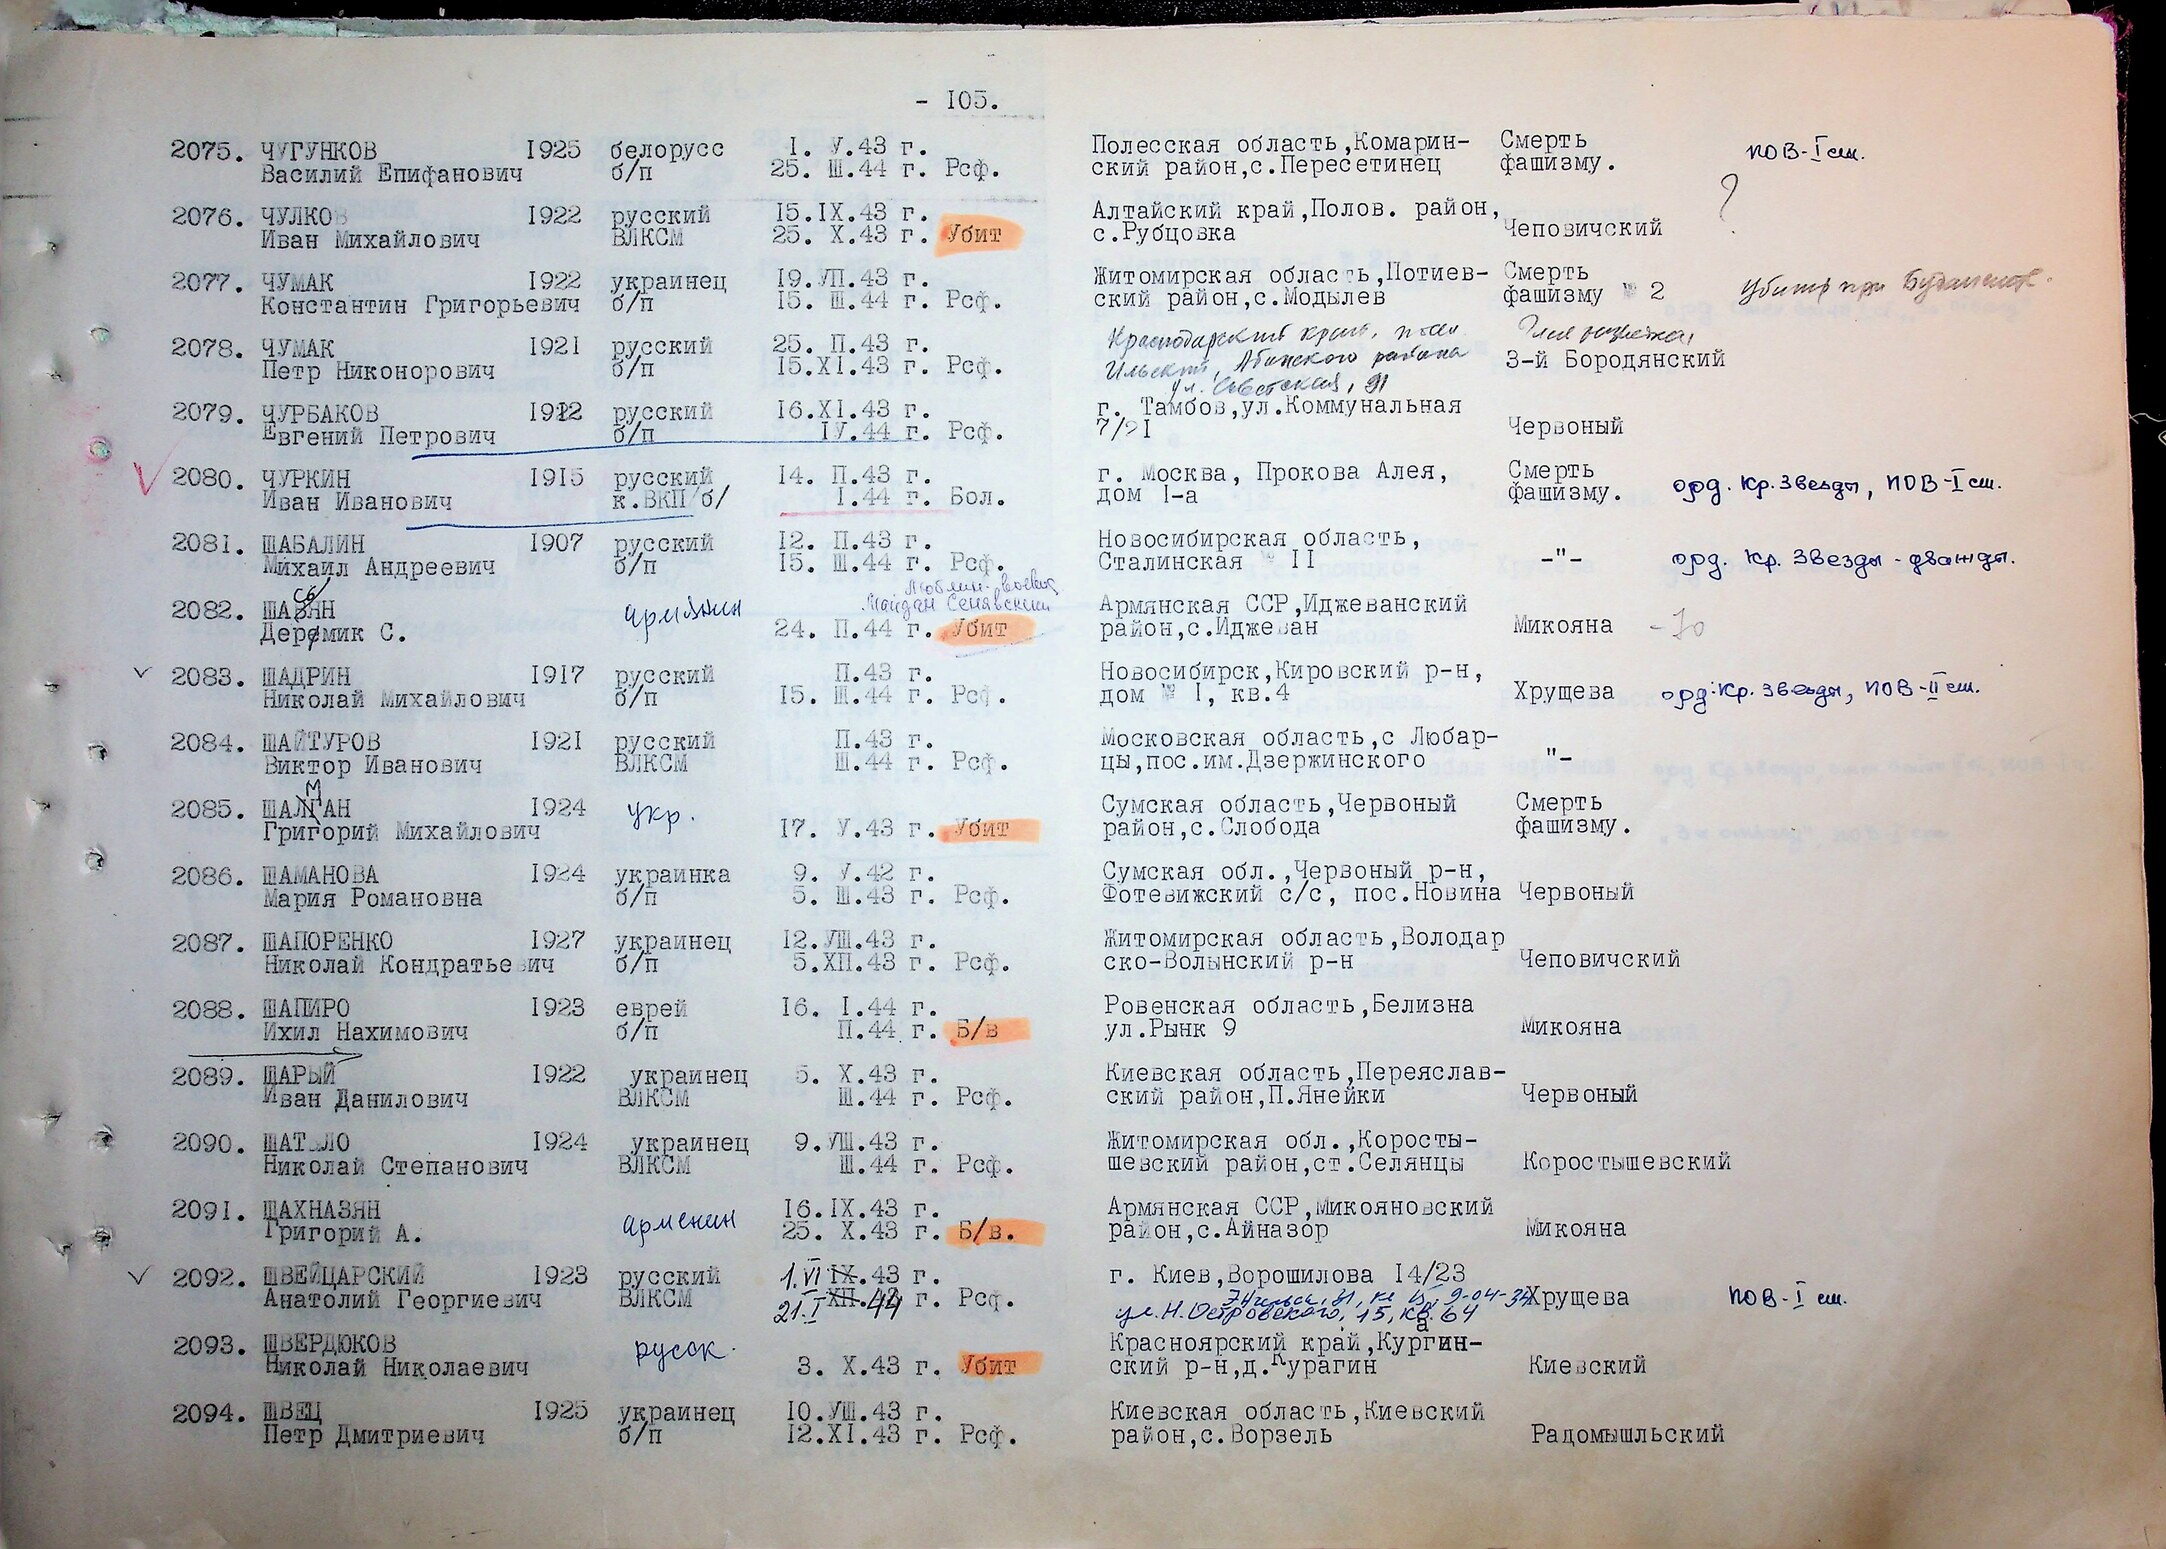 - I05.
2075. ЧУГУНКОВ I925 белорусс I. У.43 г. Полесская область,Комарин- Смерть
Василий Епифанович б/п 25. Ш.44 г. Рсф. ский район,с.Пересетинец фашизму. ПОВ-I ст.
2076. ЧУЛКОВ I922 русский I5.IX.43 г. Алтайский край,Полов. район, ?
Иван Михайлович ВЛКСМ 25. X.43 г. Убит с.Рубцовка Чеповичский
2077. ЧУМАК I922 украинец I9.УП.43 г. Житомирская область,Потиев- Смерть
Константин Григорьевич б/п I5. Ш.44 г. Рсф. ский район,с.Модылев фашизму № 2 Убит при
Краснодарский край, пос.
2078. ЧУМАК I92I русский 25. П.43 г. Ильский, Абинского района
Петр Никонорович б/п I5.XI.43 г. Рсф. ул. Советская, 91 3-й Бородянский
2079. ЧУРБАКОВ I912 русский I6.XI.43 г. г. Тамбов,ул.Коммунальная
Евгений Петрович б/п IУ.44 г. Рсф. 7/2I Червоный
2080. ЧУРКИН I9I5 русский I4. П.43 г. г. Москва, Прокова Алея, Смерть
Иван Иванович к.ВКП/б/ I.44 г. Бол. дом I-а фашизму. орд. Кр. Звезды, ПОВ-I ст.
2081. ШАБАЛИН I907 русский I2. П.43 г. Новосибирская область,
Михаил Андреевич б/п I5. Ш.44 г. Рсф. Сталинская № II -"- орд. Кр. Звезды - дважды.
Майдан Сенявский
2082. армянин Армянская ССР,Иджеванский
С. 24. П.44 г. Убит район,с.Иджеван Микояна
2083. ШАДРИН I9I7 русский П.43 г. Новосибирск,Кировский р-н,
Николай Михайлович б/п I5. Ш.44 г. Рсф. дом № I, кв.4 Хрущева орд. Кр. Звезды, ПОВ-II ст.
2084. ШАЙТУРОВ I92I русский П.43 г. Московская область,с Любар-
Виктор Иванович ВЛКСМ Ш.44 г. Рсф. цы,пос.им.Дзержинского "-
2085. ШАМАН I924 укр. Сумская область,Червоный Смерть
Григорий Михайлович I7. У.43 г. Убит район,с.Слобода фашизму.
2086. ШАМАНОВА I924 украинка 9. У.42 г. Сумская обл.,Червоный р-н,
Мария Романовна б/п 5. Ш.43 г. Рсф. Фотевижский с/с, пос.Новина Червоный
2087. ШАПОРЕНКО I927 украинец I2.УШ.43 г. Житомирская область,Володар
Николай Кондратьевич б/п 5.XП.43 г. Рсф. ско-Волынский р-н Чеповичский
2088. ШАПИРО I923 еврей I6. I.44 г. Ровенская область,Белизна
Ихил Нахимович б/п П.44 г. Б/в ул.Рынк 9 Микояна
2089. ШАРЫЙ I922 украинец 5. X.43 г. Киевская область,Переяслав-
Иван Данилович ВЛКСМ Ш.44 г. Рсф. ский район,П.Янейки Червоный
2090. I924 украинец 9.УШ.43 г. Житомирская обл.,Коросты-
Николай Степанович ВЛКСМ Ш.44 г. Рсф. шевский район,ст.Селянцы Коростышевский
2091. ШАХНАЗЯН арменин I6.IX.43 г. Армянская ССР,Микояновский
Григорий А. 25. X.43 г. Б/в. район,с.Айназор Микояна
2092. ШВЕЙЦАРСКИЙ I923 русский 1.VI IX.43 г. г. Киев,Ворошилова I4/23
Анатолий Георгиевич ВЛКСМ 21.I XП.44 г. Рсф. Хрущева ПОВ-I ст.
ул. Н. Островского, 15, кв. 64
2093. ШВЕРДЮКОВ русск. Красноярский край,Курагин-
Николай Николаевич 3. X.43 г. Убит ский р-н,д.Курагин Киевский
2094. ШВЕЦ I925 украинец I0.УШ.43 г. Киевская область,Киевский
Петр Дмитриевич б/п I2.XI.43 г. Рсф. район,с.Ворзель Радомышльский